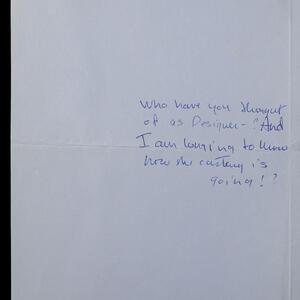 who have you thought
of as Designer - ? And
I am longing to know
how the casting is
going! ?